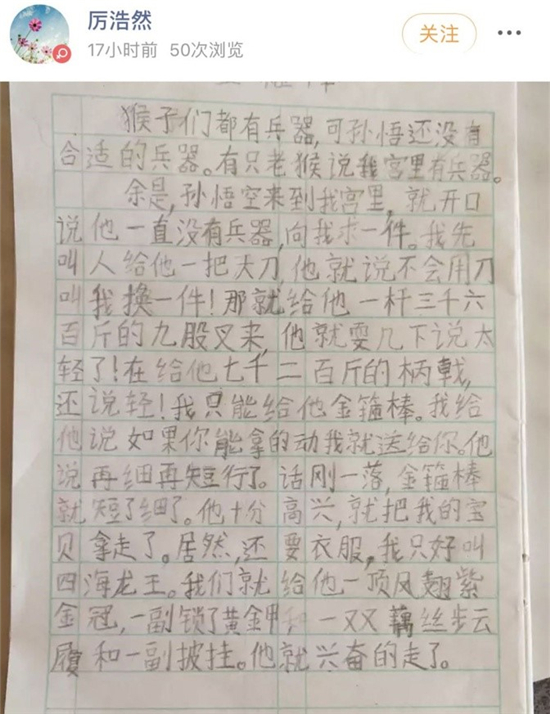 厉浩然
17小时前 50次浏览
关注
猴子们都有兵器,可孙悟还没有
合适的兵器。有只老猴说我宫里有兵器。
余是,孙悟空来到我宫里,就开口
说他一直没有兵器,向我求一件。我先
叫人给他一把大刀,他就说不会用刀
叫我换一件!那就给他一杆三千六
百斤的九股叉来,他就耍几下说太
轻了!在给他七千二百斤的柄戟,
还说轻!我只能给他金箍棒。我给
他说如果你能拿的动我就送给你。他
说再细再短行了。话刚一落,金箍棒
就短了细了。他十分高兴,就把我的宝
贝拿走了。居然,还要衣服,我只好叫
四海龙王。我们就给他一顶凤翅紫
金冠,一副锁了黄金甲和一双藕丝步云
履和一副披挂。他就兴奋的走了。